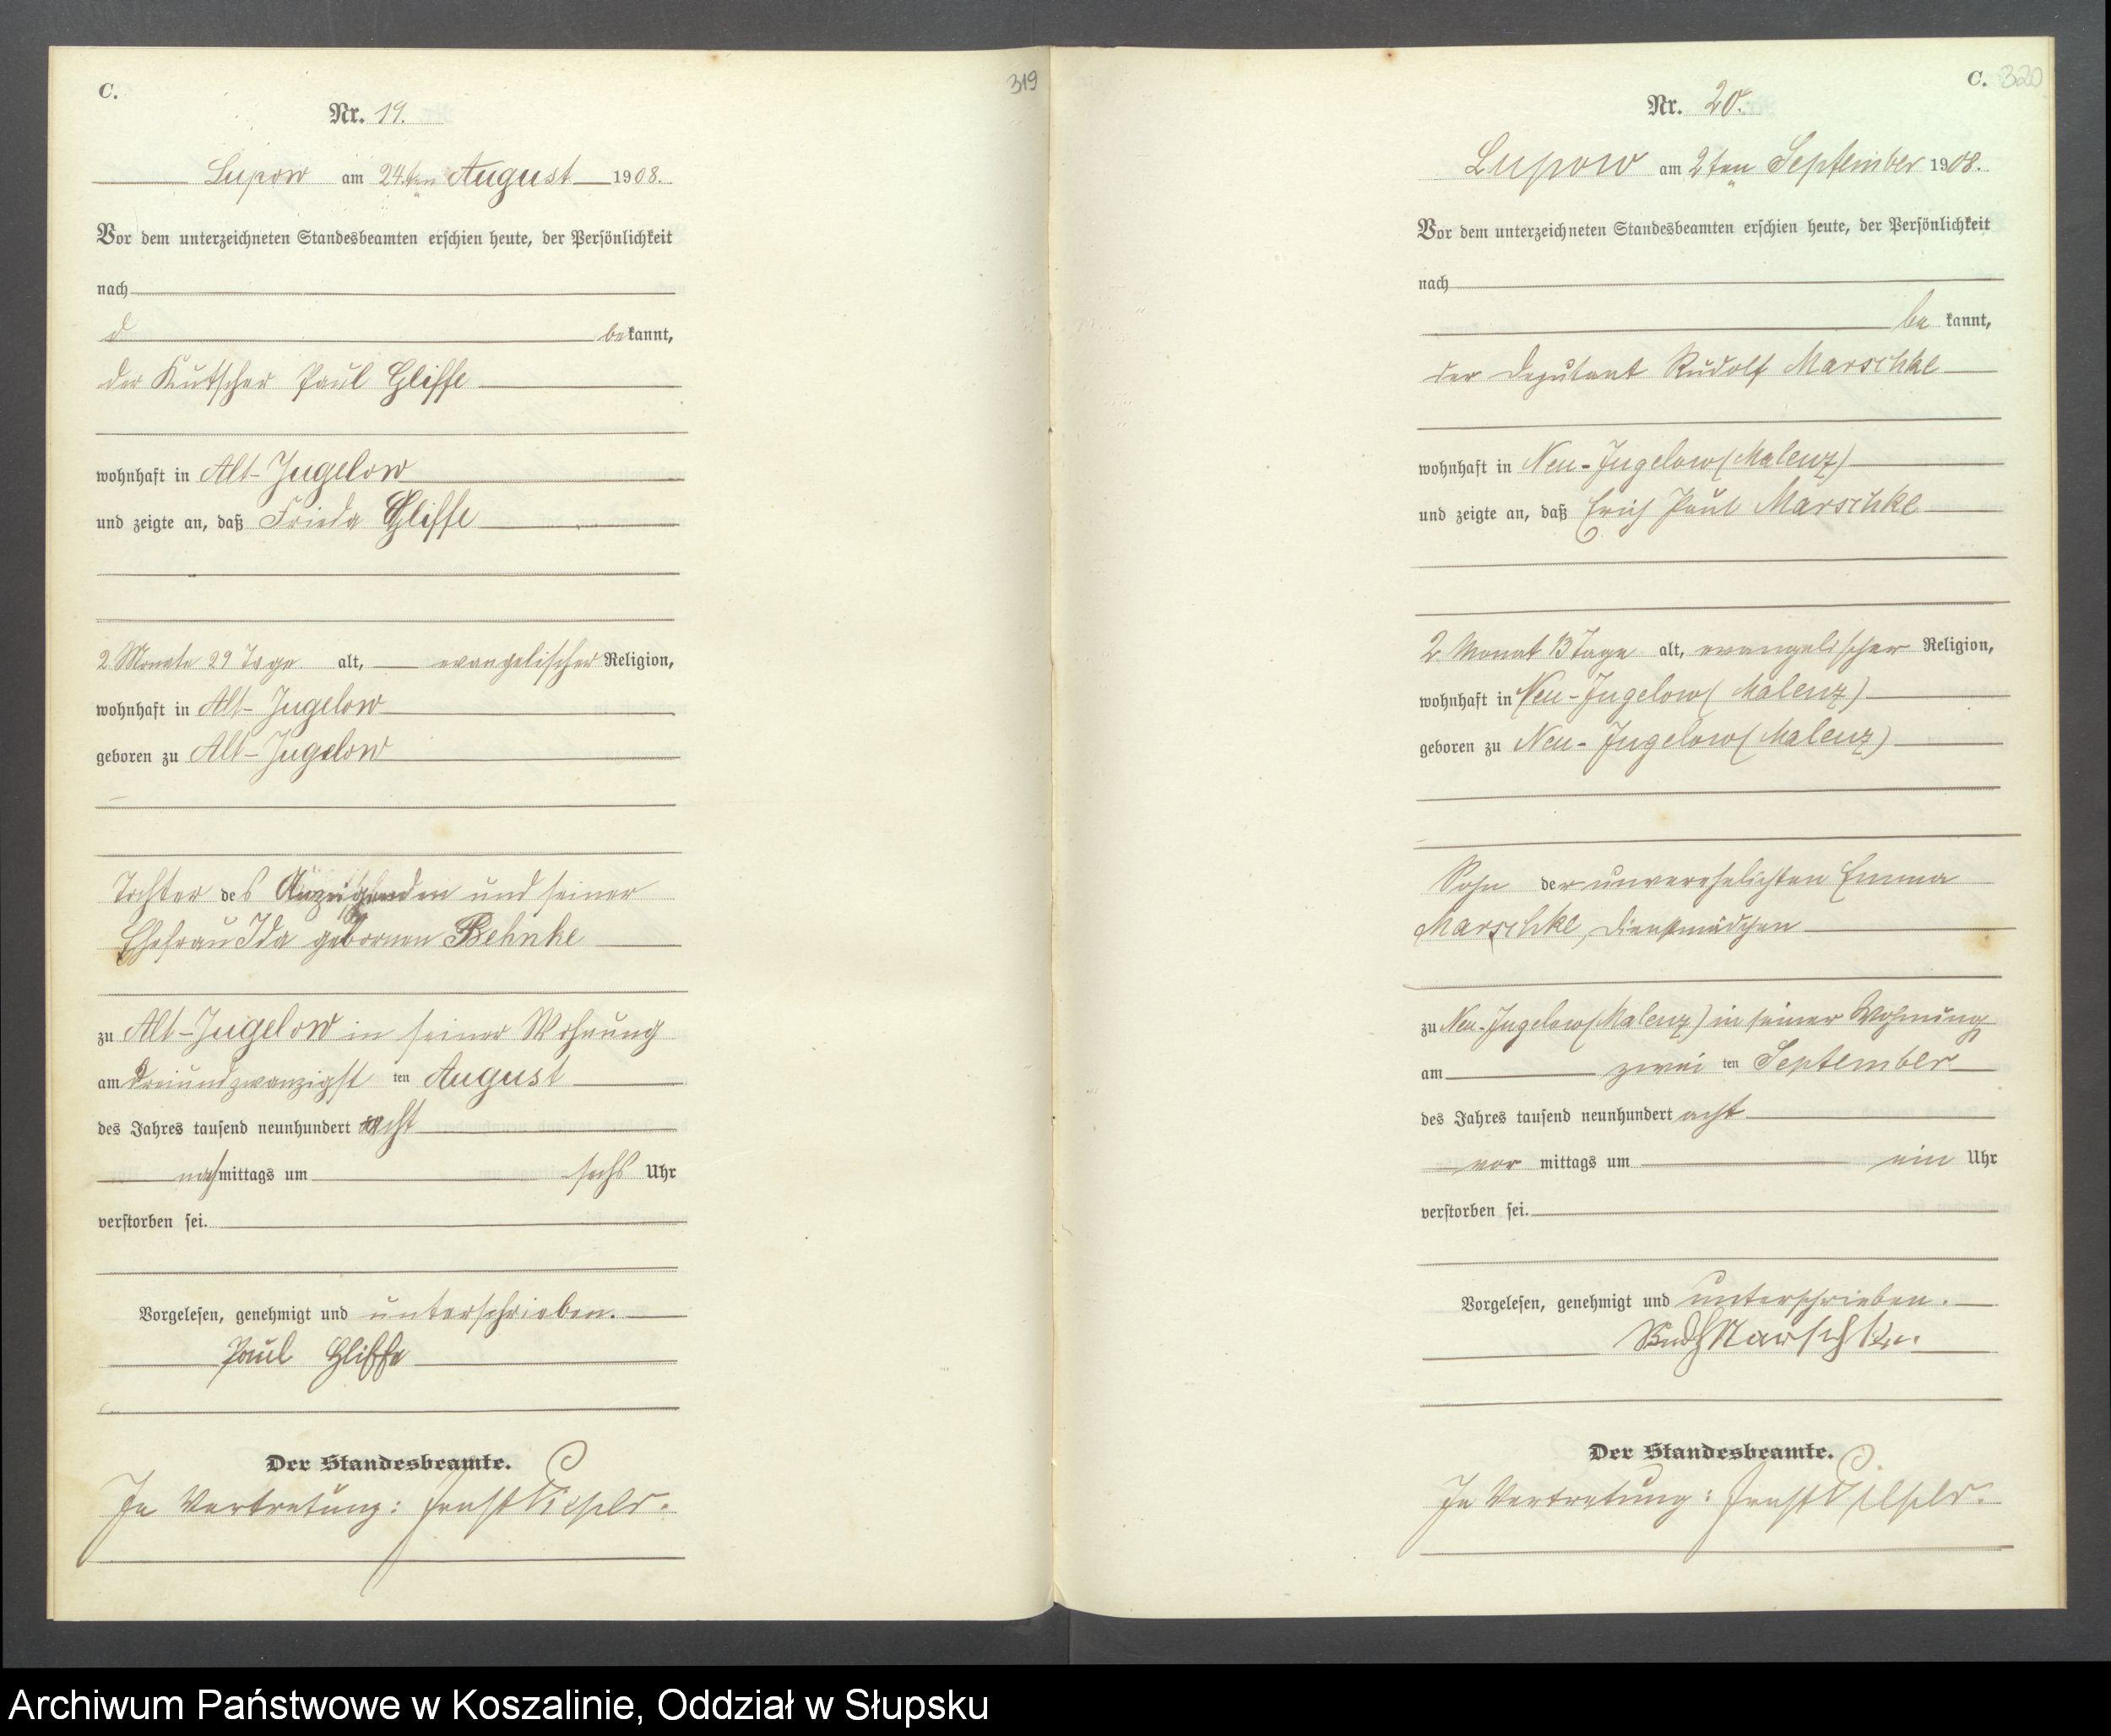 C.
319
Nr. 19.
Lupow am 24ten August 1908.
Vor dem unterzeichneten Standesbeamten erschien heute, der Persönlichkeit
nach
d bekannt,
der Kutscher Paul Gliffe
wohnhaft in Alt-Jugelow
und zeigte an, daß Frieda Gliffe
2 Monate 29 Tage alt, evangelischer Religion,
wohnhaft in Alt-Jugelow
geboren zu Alt-Jugelow
Tochter des Anzeigenden und seiner
Ehefrau Ida gebornen Behnke
zu Alt-Jugelow in seiner Wohnung
am dreiundzwanzigst ten August
des Jahres tausend neunhundert acht
nachmittags um sechs Uhr
verstorben sei.
Vorgelesen, genehmigt und unterschrieben.
Paul Gliffe
Der Standesbeamte.
In Vertretung: Ernst
C. 320
Nr. 20.
Lupow am 2ten September 1908.
Vor dem unterzeichneten Standesbeamten erschien heute, der Persönlichkeit
nach
be kannt,
der Deputant Rudolf Marschke
wohnhaft in Neu-Jugelow (Malenz)
und zeigte an, daß Erich Paul Marschke
2 Monat 13 Tage alt, evangelischer Religion,
wohnhaft in Neu-Jugelow (Malenz)
geboren zu Neu-Jugelow (Malenz)
Sohn der unverehelichten Emma
Marschke, Dienstmädchen
zu Neu-Jugelow (Malenz) in seiner Wohnung
am zwei ten September
des Jahres tausend neunhundert acht
vor mittags um ein Uhr
verstorben sei.
Vorgelesen, genehmigt und unterschrieben.
Marschke.
Der Standesbeamte.
In Vertretung: Ernst
Archiwum Państwowe w Koszalinie, Oddział w Słupsku